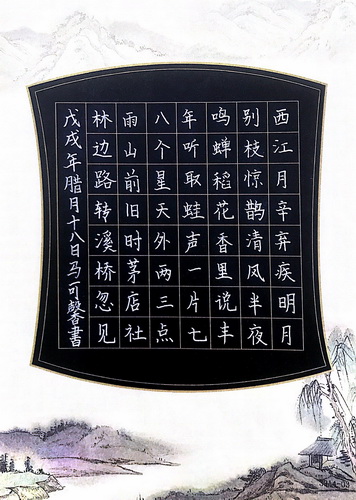 西江月辛弃疾明月
别枝惊鹊清风半夜
鸣蝉稻花香里说丰
年听取蛙声一片七
八个星天外两三点
雨山前旧时茅店社
林边路转溪桥忽见
戊戌年腊月十八日马可馨書